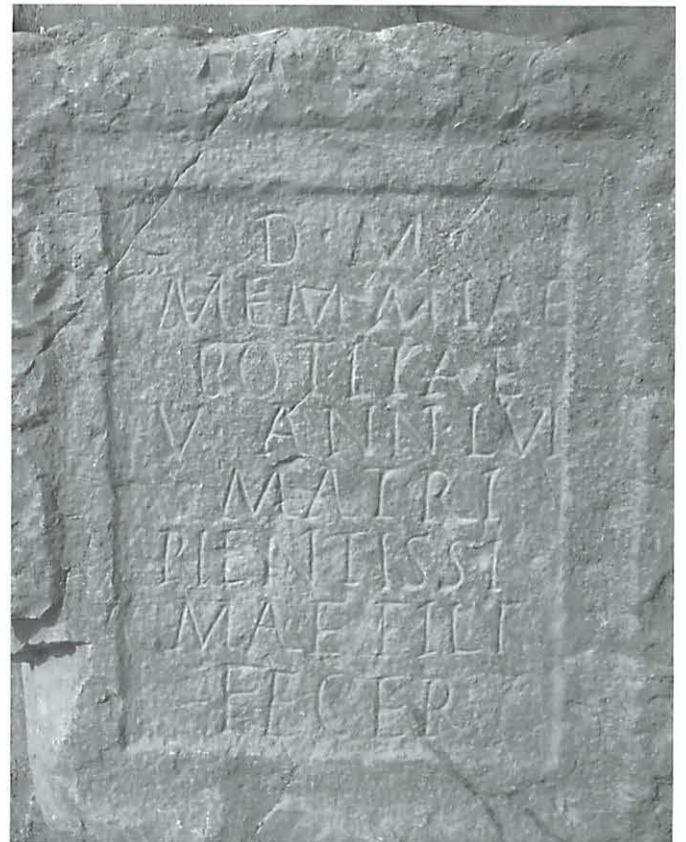 D · M
MEMMIAE
BOTIIAE
V ANN · LVI
MATRI
PIENTISSI
MAE FILI
FECER